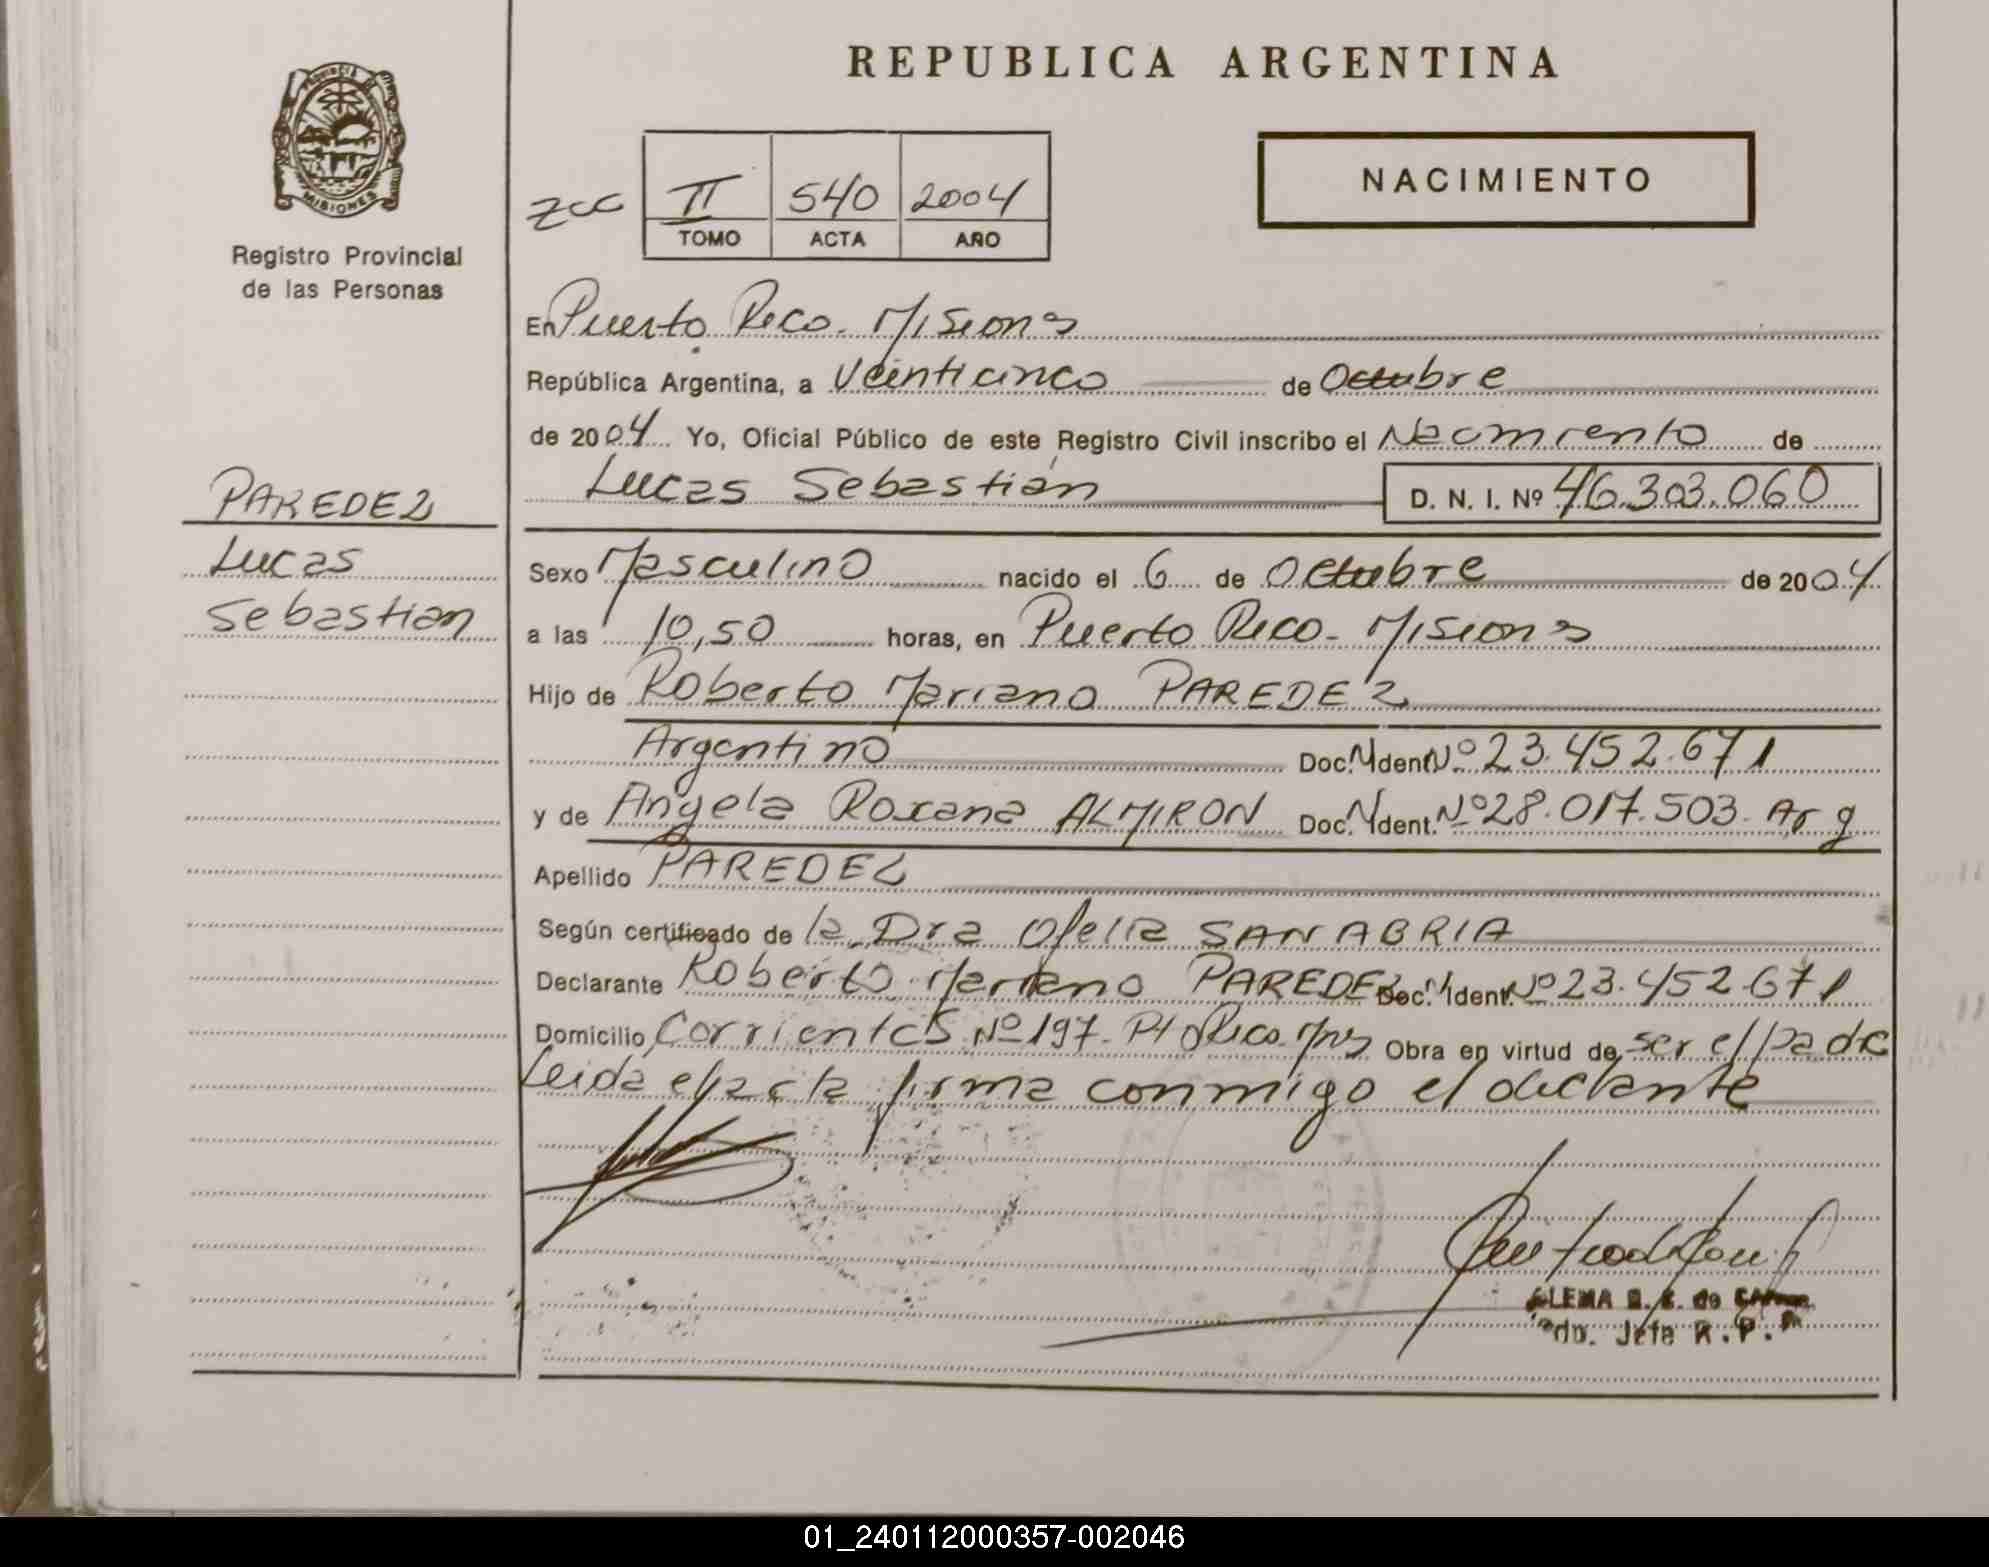 REPUBLICA ARGENTINA
PROVINCIA DE
MISIONES
Registro Provincial
de las Personas
NACIMIENTO
zcc II 540 2004
TOMO ACTA AÑO
En Puerto Rico. Misiones
República Argentina, a Veinticinco de Octubre
de 2004 Yo, Oficial Público de este Registro Civil inscribo el Nacimiento de
Lucas Sebastián D. N. I. Nº 46.303.060
PAREDEZ
Lucas
Sebastian
Sexo Masculino nacido el 6 de Octubre de 2004
a las 10,50 horas, en Puerto Rico. Misiones
Hijo de Roberto Mariano PAREDEZ
Argentino Doc. Ident. Nº 23.452.671
y de Angela Roxana ALMIRON Doc. Ident. Nº 28.017.503. Arg
Apellido PAREDEZ
Según certificado de la Dra Ofelia SANABRIA
Declarante Roberto Mariano PAREDEZ Doc. Ident. Nº 23.452.671
Domicilio Corrientes Nº 197. Pto Rico. Mnes Obra en virtud de ser el padre
Leida el acta firma conmigo el declarante
Jefe R.P.
01_240112000357-002046